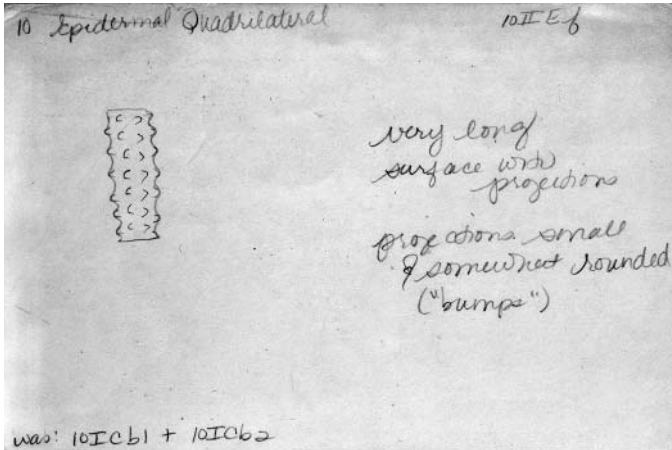 10 Epidermal Quadrilateral
10 II E f
very long
surface with
projections
projections small
& somewhat rounded
("bumps")
was: 10ICb1 + 10ICb2